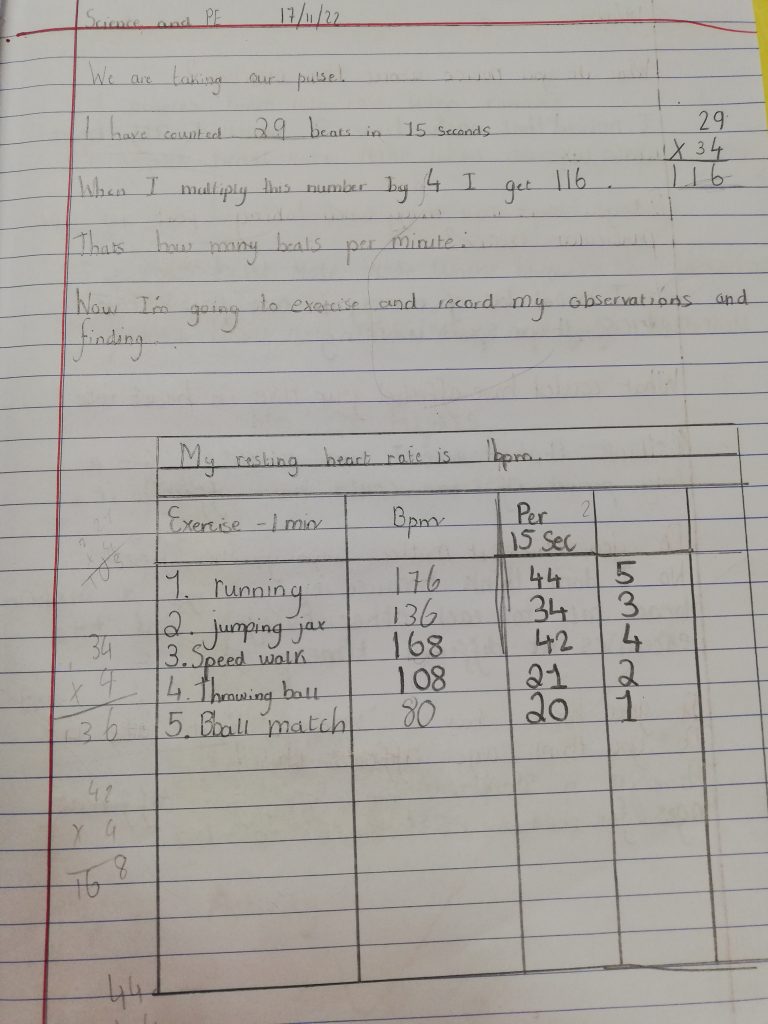 Science and PE 17/11/22
We are taking our pulse!
I have counted 29 beats in 15 seconds
29
X 34
116
When I multiply this number by 4 I get 116.
Thats how many beats per minute.
Now I'm going to exercise and record my observations and
finding.
My resting heart rate is bpm.
Exercise - 1 min Bpm Per 15 Sec 2
1. running 176 44 5
2. jumping jax 136 34 3
3. Speed walk 168 42 4
4. Throwing ball 108 21 2
5. Bball match 80 20 1
34
x 4
136
42
x 4
168
44